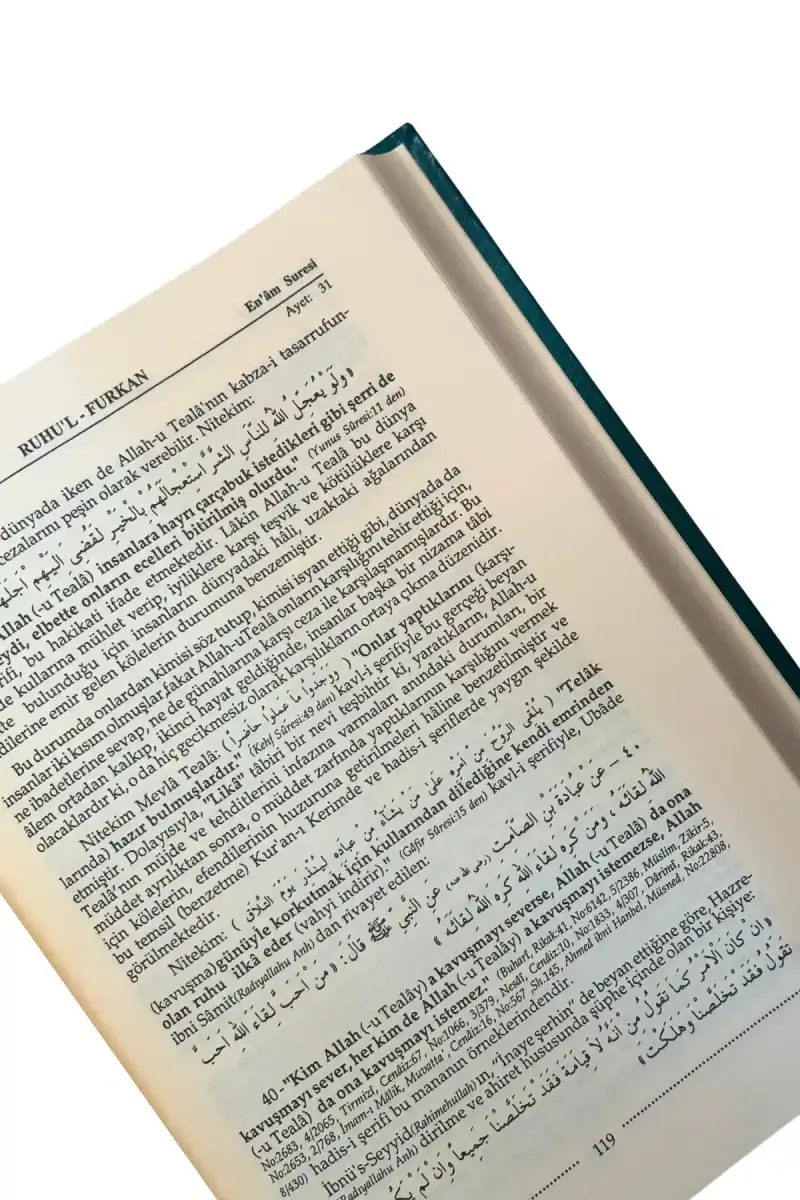 RUHU'L - FURKAN
En'âm Suresi
Ayet: 31
dünyada iken de Allah-u Tealâ'nın kabza-i tasarrufun-
cezalarını peşin olarak verebilir. Nitekim:
﴿وَلَوْ يُعَجِّلُ اللّٰهُ لِلنَّاسِ الشَّرَّ اسْتِعْجَالَهُمْ بِالْخَيْرِ لَقُضِىَ اِلَيْهِمْ اَجَلُهُ
Allah (-u Teâlâ) insanlara hayrı çarçabuk istedikleri gibi şerri de
eydi, elbette onların ecelleri bitirilmiş olurdu." (Yunus Sûresi:11 den)
rifi, bu hakikati ifade etmektedir. Lâkin Allah-u Teâlâ bu dünya
de kullarına mühlet verip, iyiliklere karşı teşvik ve kötülüklere karşı
te bulunduğu için insanların dünyadaki hâli, uzaktaki ağalarından
dilerine emir gelen kölelerin durumuna benzemiştir.
Bu durumda onlardan kimisi söz tutup, kimisi isyan ettiği gibi, dünyada da
insanlar iki kısım olmuşlar, fakat Allah-u Teâlâ onların karşılığını tehir ettiği için,
ne ibadetlerine sevap, ne de günahlarına karşı ceza ile karşılaşmamışlardır. Bu
âlem ortadan kalkıp, ikinci hayat geldiğinde, insanlar başka bir nizama tâbi
olacaklardır ki, o da hiç gecikmesiz olarak karşılıkların ortaya çıkma düzenidir.
Nitekim Mevlâ Teâlâ: ﴿وَوَجَدُوا مَا عَمِلُوا حَاضِرًا﴾ "Onlar yaptıklarını (karşı-
larında) hazır bulmuşlardır." (Kehf Sûresi:49 dan) kavl-i şerifiyle bu gerçeği beyan
etmiştir. Dolayısıyla, "Likâ" tâbiri bir nevi teşbihtir ki, yaratıkların, Allah-u
Teâlâ'nın müjde ve tehditlerini infazına varmaları anındaki durumları, bir
müddet ayrılıktan sonra, o müddet zarfında yaptıklarının karşılığını vermek
için kölelerin, efendilerinin huzuruna getirilmeleri hâline benzetilmiştir ve
bu temsil (benzetme) Kur'an-ı Kerimde ve hadis-i şeriflerde yaygın şekilde
görülmektedir.
Nitekim: ﴿يُلْقِى الرُّوحَ مِنْ اَمْرِهِ عَلَى مَنْ يَشَاءُ مِنْ عِبَادِهِ لِيُنْذِرَ يَوْمَ التَّلَاقِ﴾ "Telâk
(kavuşma) günüyle korkutmak için kullarından dilediğine kendi emrinden
olan ruhu ilkâ eder (vahyi indirir)." (Gâfir Sûresi:15 den) kavl-i şerifiyle, Ubâde
ibni Sâmit(Radıyallahu Anh) dan rivayet edilen:
٤٠ – عَنْ عُبَادَةَ بْنِ الصَّامِتِ (رضى الله عنه) عَنِ النَّبِىِّ ﷺ قَالَ: «مَنْ اَحَبَّ لِقَاءَ اللّٰهِ اَحَبَّ
اللّٰهُ لِقَائَهُ، وَمَنْ كَرِهَ لِقَاءَ اللّٰهِ كَرِهَ اللّٰهُ لِقَائَهُ»
40-"Kim Allah (-u Teâlây) a kavuşmayı severse, Allah (-u Teâlâ) da ona
kavuşmayı sever, her kim de Allah (-u Teâlây) a kavuşmayı istemezse, Allah
(-u Teâlâ) da ona kavuşmayı istemez." (Buhari, Rikak:41, No:6142, 5/2386, Müslim, Zikir:5,
No:2683, 4/2065, Tirmizî, Cenâiz:67, No:1066, 3/379, Nesâî, Cenâiz:10, No:1833, 4/307, Dârimî, Rikak:43,
No:2653, 2/768, İmam-ı Mâlik, Muvatta', Cenâiz:16, No:567, Sh.145, Ahmed ibni Hanbel, Müsned, No:22808,
8/430) hadis-i şerifi bu mananın örneklerindendir.
İbnü's-Seyyid(Rahimehullah)ın, "İnaye şerhin" de beyan ettiğine göre, Hazre-
(Radıyallahu Anh) dirilme ve ahiret hususunda şüphe içinde olan bir kişiye:
«اِنْ كَانَ الْاَمْرُ كَمَا تَقُولُ مِنْ اَنَّهُ لَا قِيَامَةَ فَقَدْ تَخَلَّصْنَا جَمِيعًا وَاِنْ لَمْ يَكُ
تَقُولُ فَقَدْ تَخَلَّصْنَا وَهَلَكْتَ»
119